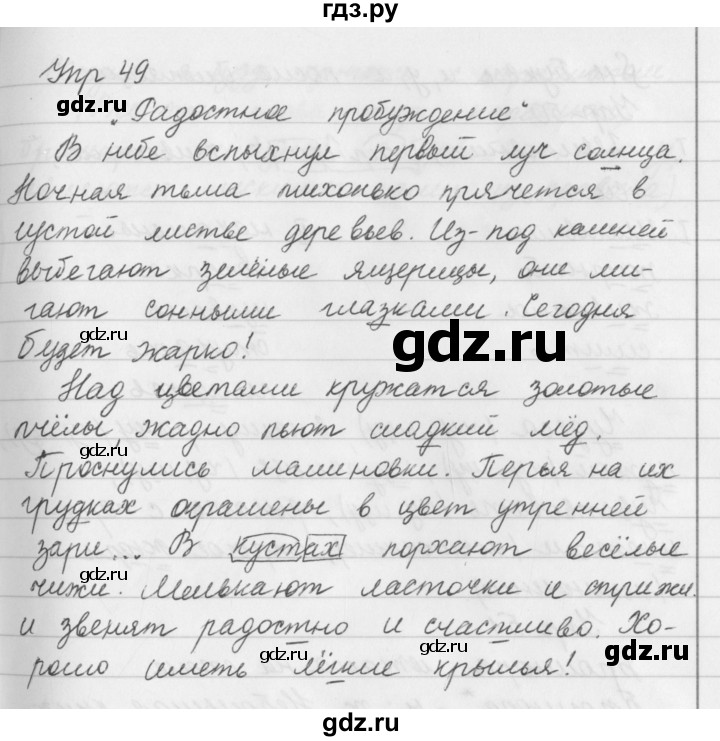 гдз.ру
Упр 49
gdz.ru
gdz.ru
„Радостное пробуждение“
В небе вспыхнул первый луч солнца.
Ночная тьма тихонько прячется в
густой листве деревьев. Из-под камней
выбегают зелёные ящерицы, они ми-
гают сонными глазками. Сегодня
gdz.ru
будет жарко!
gdz.ru
Над цветами кружатся золотые
пчёлы, жадно пьют сладкий мёд.
gdz.ru
gdz.ru
Проснулись малиновки. Перья на их
грудках окрашены в цвет утренней
зари... В кустах порхают весёлые
чижи. Мелькают ласточки и стрижи
и звенят радостно и счастливо. Хо-
gdz.ru
gdz.ru
рошо иметь лёгкие крылья!
gdz.ru